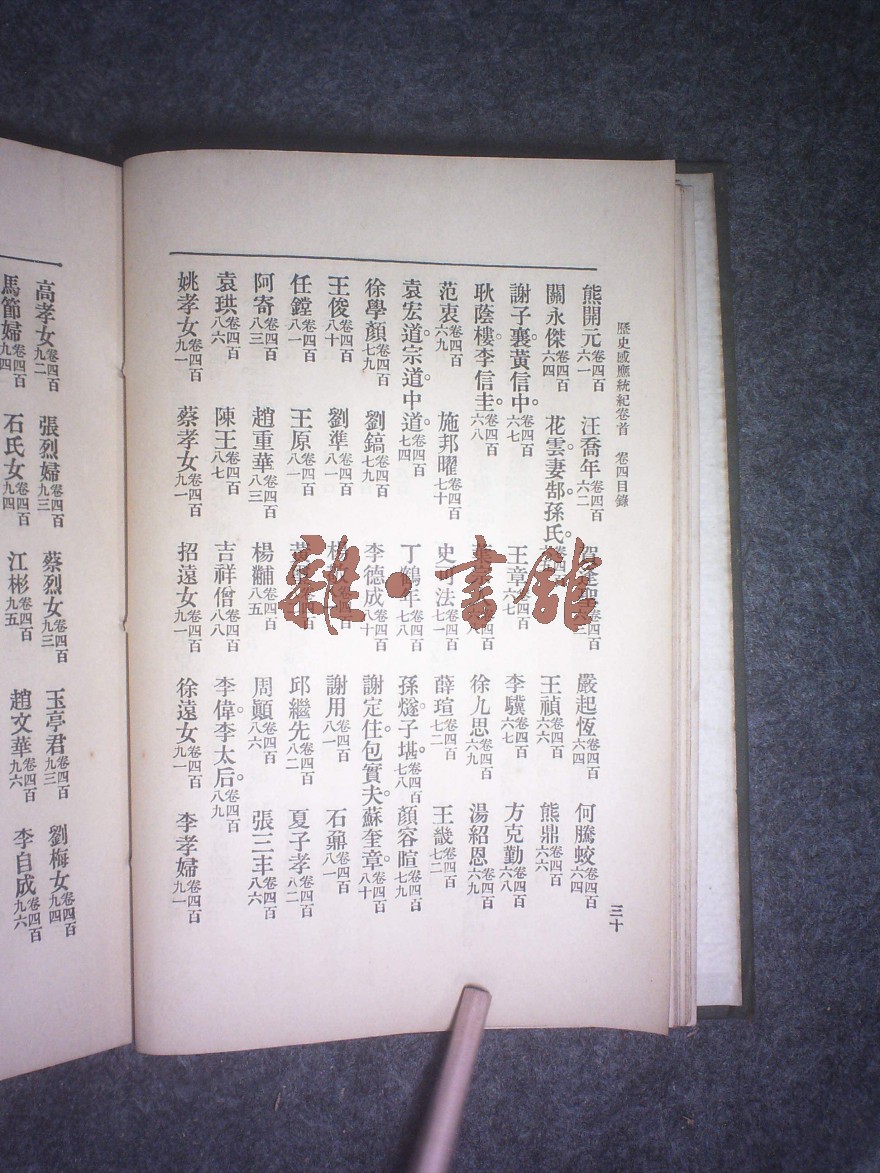 歷史感應統紀卷首 卷四目錄 三十
熊開元卷四百六一 汪喬年卷四百六二 卷四百六三 嚴起恆卷四百六四 何騰蛟卷四百六四
關永傑卷四百六四 花雲。妻郜。孫氏。 王禎卷四百六六 熊鼎卷四百六六
謝子襄。黃信中。卷四百六七 王章卷四百六七 李驥卷四百六七 方克勤卷四百六八
耿蔭樓。李信圭。卷四百六八 徐九思卷四百六九 湯紹恩卷四百六九
范衷卷四百六九 施邦曜卷四百七十 史可法卷四百七一 薛瑄卷四百七二 王畿卷四百七二
袁宏道。宗道。中道。卷四百七四 丁鶴年卷四百七八 孫燧。子堪。卷四百七八 顏容暄卷四百七九
徐學顏卷四百七九 劉鎬卷四百七九 李德成卷四百八十 謝定住。包實夫。蘇奎章。卷四百八十
王俊卷四百八十 劉準卷四百八一 楊 謝用卷四百八一 石鼐卷四百八一
任鏜卷四百八一 王原卷四百八一 邱繼先卷四百八二 夏子孝卷四百八二
阿寄卷四百八三 趙重華卷四百八三 楊黼卷四百八五 周顚卷四百八六 張三丰卷四百八六
袁珙卷四百八六 陳王卷四百八七 吉祥僧卷四百八八 李偉。李太后。卷四百八九
姚孝女卷四百九一 蔡孝女卷四百九一 招遠女卷四百九一 徐遠女卷四百九一 李孝婦卷四百九一
高孝女卷四百九二 張烈婦卷四百九三 蔡烈女卷四百九三 玉亭君卷四百九三 劉梅女卷四百九四
馬節婦卷四百九四 石氏女卷四百九四 江彬卷四百九五 趙文華卷四百九六 李自成卷四百九六
雜·書館